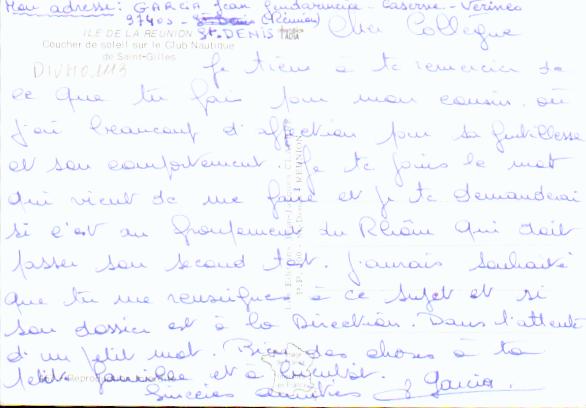 Mon adresse: GARCIA Jean Gendarmerie - Caserne - Vérines
97400 - St DENIS (Réunion)
ILE DE LA REUNION
Coucher de soleil sur le Club Nautique
de Saint-Gilles
DIVH0113
Cher Collègue
Je tiens à te remercier de
ce que tu fais pour mon cousin, où
j'ai beaucoup d'affection pour sa gentillesse
et son comportement. Je te joins le mot
qui vient de me faire et je te demanderai
si c'est au groupement du Rhône qui doit
passer son second test. J'aurais souhaité
que tu me renseignes à ce sujet et si
son dossier est à la Direction. Dans l'attente
d'un petit mot. Bien des choses à ta
petite famille et à bientôt.
Sincères amitiés J Garcia